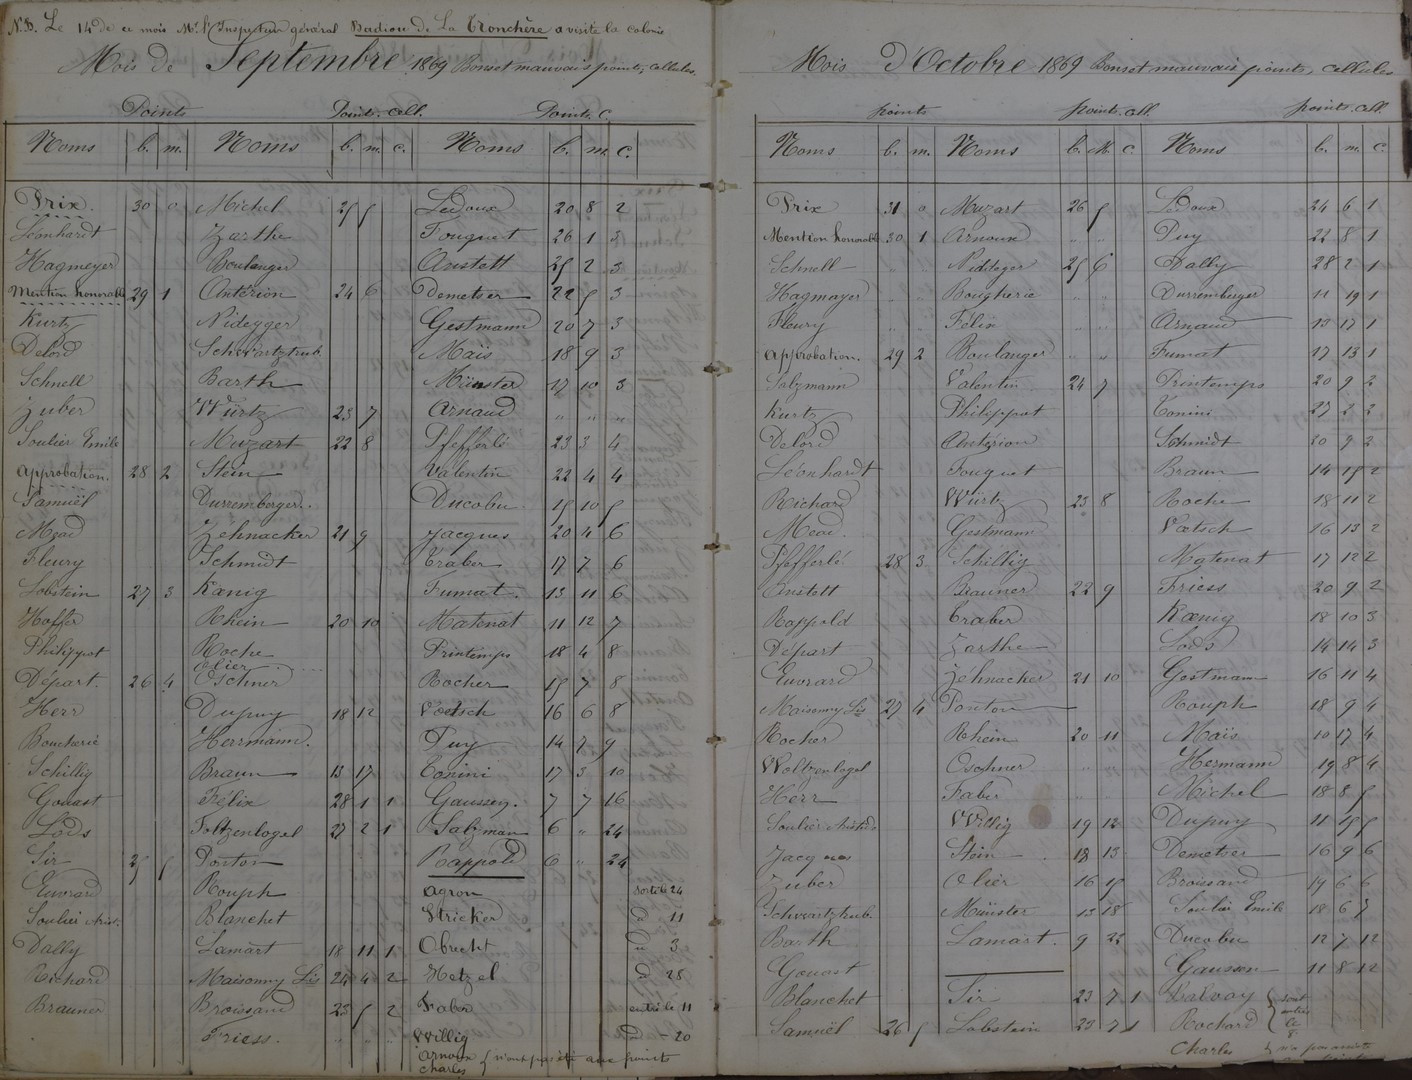 N.B. Le 14 de ce mois Mr. l'Inspecteur général Badiou de La Tronchère a visité la colonie
Mois de Septembre 1869 Bons et mauvais points, cellules.
Points Points. cell. Points. C.
Noms b. m. Noms b. m. c. Noms b. m. c.
Prix. 30 0 Michel 25 5 Ledoux 20 8 2
Léonhardt Zarthe Fouquet 26 1 3
Hagmeyer Boulanger Anstett 25 2 3
Mention honorable 29 1 Antérion 24 6 Demetser 22 5 3
Kurtz Nidegger Gestmann 20 7 3
Delord Schwartztrub Maïs 18 9 3
Schnell Barth Münster 17 10 3
Zuber Würtz 23 7 Arnaud " " "
Soulier Emile Muzart 22 8 Pfefferlé 23 3 4
Approbation. 28 2 Stein Valentin 22 4 4
Samuël Durremberger. Ducobu 15 10 5
Méad Zehnacker 21 9 Jacques 20 4 6
Fleury Schmidt Traber 17 7 6
Lobstein 27 3 Kœnig Fumat. 13 11 6
Hoffer Rhein 20 10 Matenat 11 12 7
Philippot Roche Printemps 18 4 8
Olier
Départ. 26 4 Oschner Rocher 15 7 8
Herr Dupuy 18 12 Voetsch 16 6 8
Boucherie Herrmann. Puy 14 7 9
Schillig Braun 13 17 Conini 17 3 10
Gouast Félix 28 1 1 Gaussen. 7 7 16
Lods Foltzenlogel 27 2 1 Salzman 6 " 24
Sir 25 5 Ponton Rappold 6 " 24
Euvrard Rouph Agron sorti le 24
Soulier Arist. Blanchet Stricker d 11
Dally Lamart 18 11 1 Obrecht d 3
Richard Maisonny Lis 24 4 2 Hetzel d 28
Brauner Broissand 23 5 2 Faber entré le 11
Friess. " " " Willig d - 20
Arnoux
Charles } n'ont pas été aux points
Mois d'Octobre 1869 Bons et mauvais points, cellules
points points. cell. points. cell.
Noms b. m. Noms b. M. C. Noms b. m. C
Prix 31 0 Muzart 26 5 Ledoux 24 6 1
Mention honorable 30 1 Arnoux " " Puy 22 8 1
Schnell Nidegger 25 6 Dally 28 2 1
Hagmayer Bougherie " " Durremberger 11 19 1
Fleury Félix " " Arnaud 13 17 1
Approbation. 29 2 Boulanger " " Fumat 17 13 1
Salzmann Valentin 24 7 Printemps 20 9 2
Kurtz Philippot Conini 27 2 2
Delord Antérion Schmidt 20 9 2
Léonhardt Fouquet Braun 14 15 2
Richard Würtz 23 8 Roche 18 11 2
Mead. Gestmann Voetsch 16 13 2
Pfefferlé 28 3 Schillig Matenat 17 12 2
Anstett Brauner 22 9 Friess 20 9 2
Rappold Traber Kœnig 18 10 3
Départ Zarthe Lods 14 14 3
Euvrard Zéhnacker 21 10 Gestmann 16 11 4
Maisonny Lis 27 4 Ponton Rouph 18 9 4
Rocher Rhein 20 11 Maïs 10 17 4
Woltzenlogel Oschner " " Hermann 19 8 4
Herr Faber " Michel 18 8 5
Soulier Aristide Willig 19 12 Dupuy 11 15 5
Jacques Stein 18 13 Demetser 16 9 6
Zuber Olier 16 15 Broissand 19 6 6
Schwartztrub. Münster 13 18 Soulier Emile 18 6 7
Barth Lamart. 9 22 Ducobu 12 7 12
Gouast Gaussen 11 8 12
Blanchet Sir 23 7 1 Balvay
Samuël 26 5 Lobstein 23 7 1 Rochard } sont entrés le
Charles } n'a pas assisté